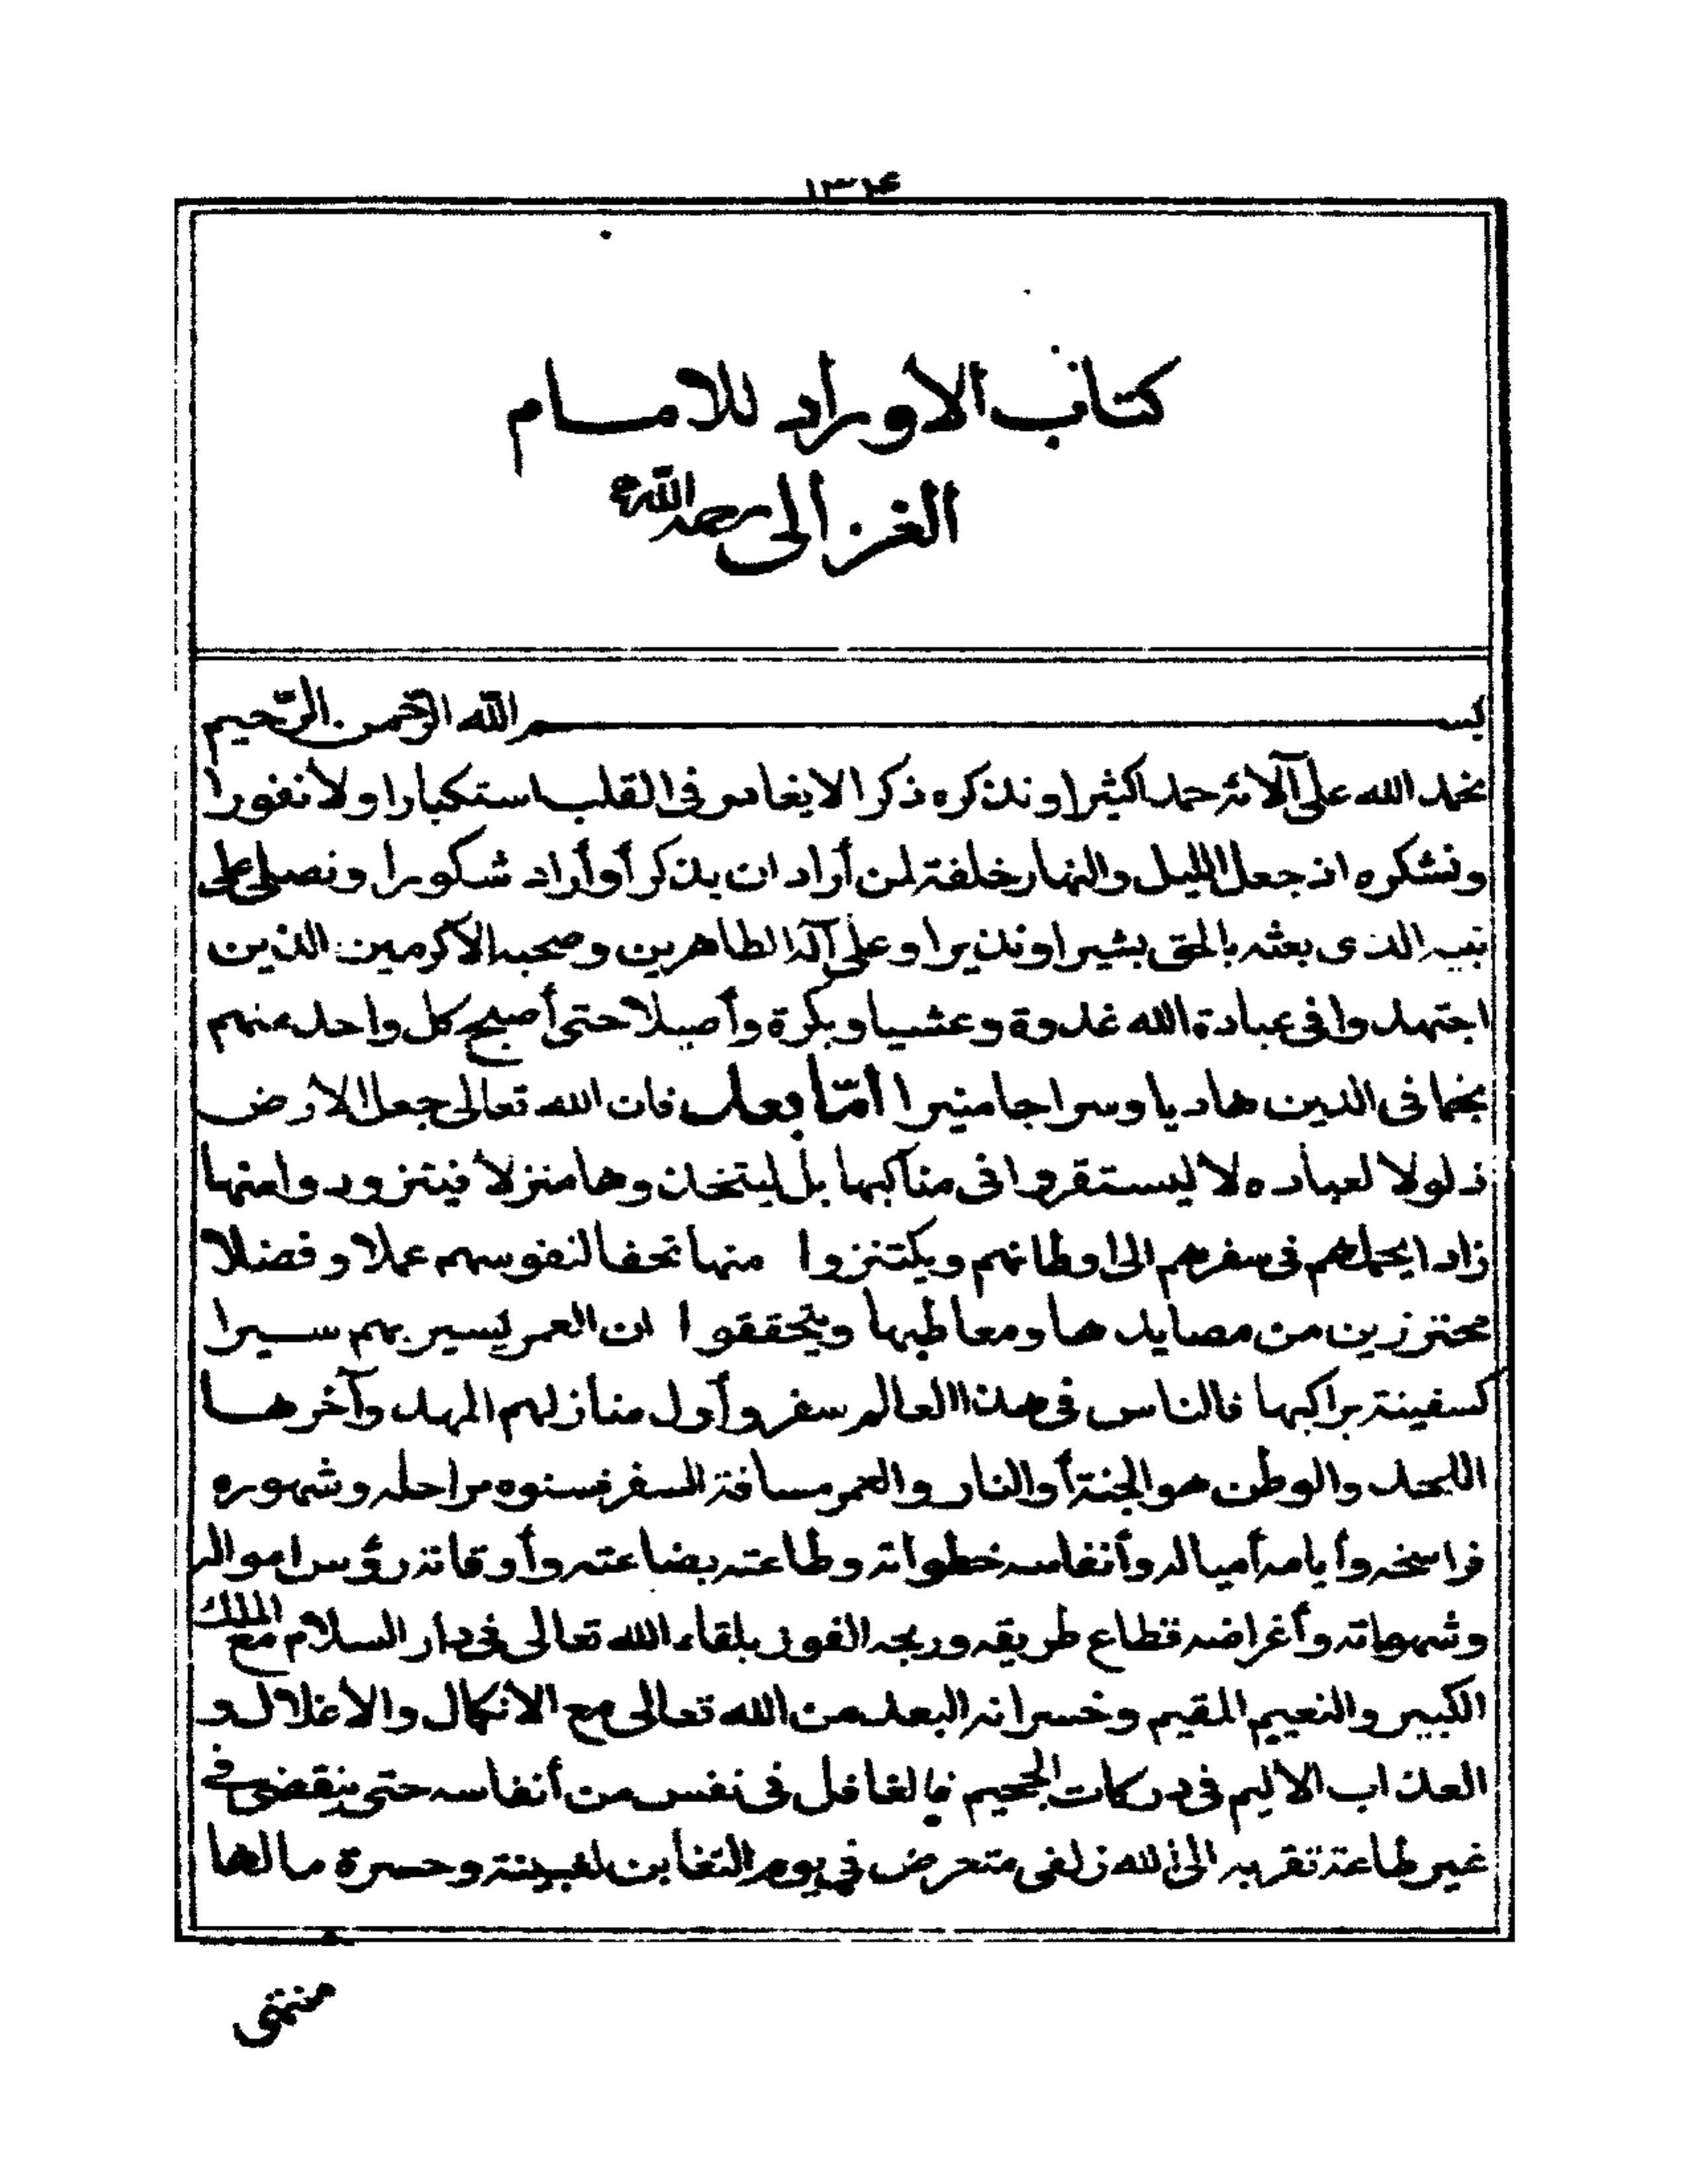 ١٣٢٤
كتاب الاوراد للامام
الغزالى رحمه الله
بسم الله الرّحمن الرّحيم
نحمد الله على آلائه حمدا كثيرا ونذكره ذكرا لا يغادر فى القلب استكبارا ولا نفورا
ونشكره اذ جعل الليل والنهار خلفة لمن أراد ان يذكر أو أراد شكورا ونصلى على
نبيه الذى بعثه بالحق بشيرا ونذيرا وعلى آله الطاهرين وصحبه الأكرمين الذين
اجتهدوا فى عبادة الله غدوة وعشيا وبكرة وأصيلا حتى أصبح كل واحد منهم
نجما فى الدين هاديا وسراجا منيرا امّا بعد فان الله تعالى جعل الأرض
ذلولا لعباده لا ليستقروا فى مناكبها بل ليتخذوها منزلا فيتزودوا منها
زادا يحملهم فى سفرهم الى اوطانهم ويكتنزوا منها تحفا لنفوسهم عملا وفضلا
محترزين من مصايدها ومعاطبها ويتحققوا ان العمر يسير بهم سيرا
كسفينة براكبها فالناس فى هذا العالم سفر وأول منازلهم المهد وآخرها
اللحد والوطن هو الجنة أو النار والعمر مسافة السفر فسنوه مراحله وشهوره
فراسخه وأيامه أمياله وأنفاسه خطواته وطاعته بضاعته وأوقاته رؤس امواله
وشهواته وأغراضه قطاع طريقه وربحه الفوز بلقاء الله تعالى فى دار السلام مع الملك
الكبير والنعيم المقيم وخسرانه البعد من الله تعالى مع الانكال والأغلال و
العذاب الاليم فى دركات الجحيم فالغافل فى نفس من أنفاسه حتى ينقضى فى
غير طاعة تقربه الى الله زلفى متعرض فى يوم التغابن لغبينة وحسرة مالها
منتهى